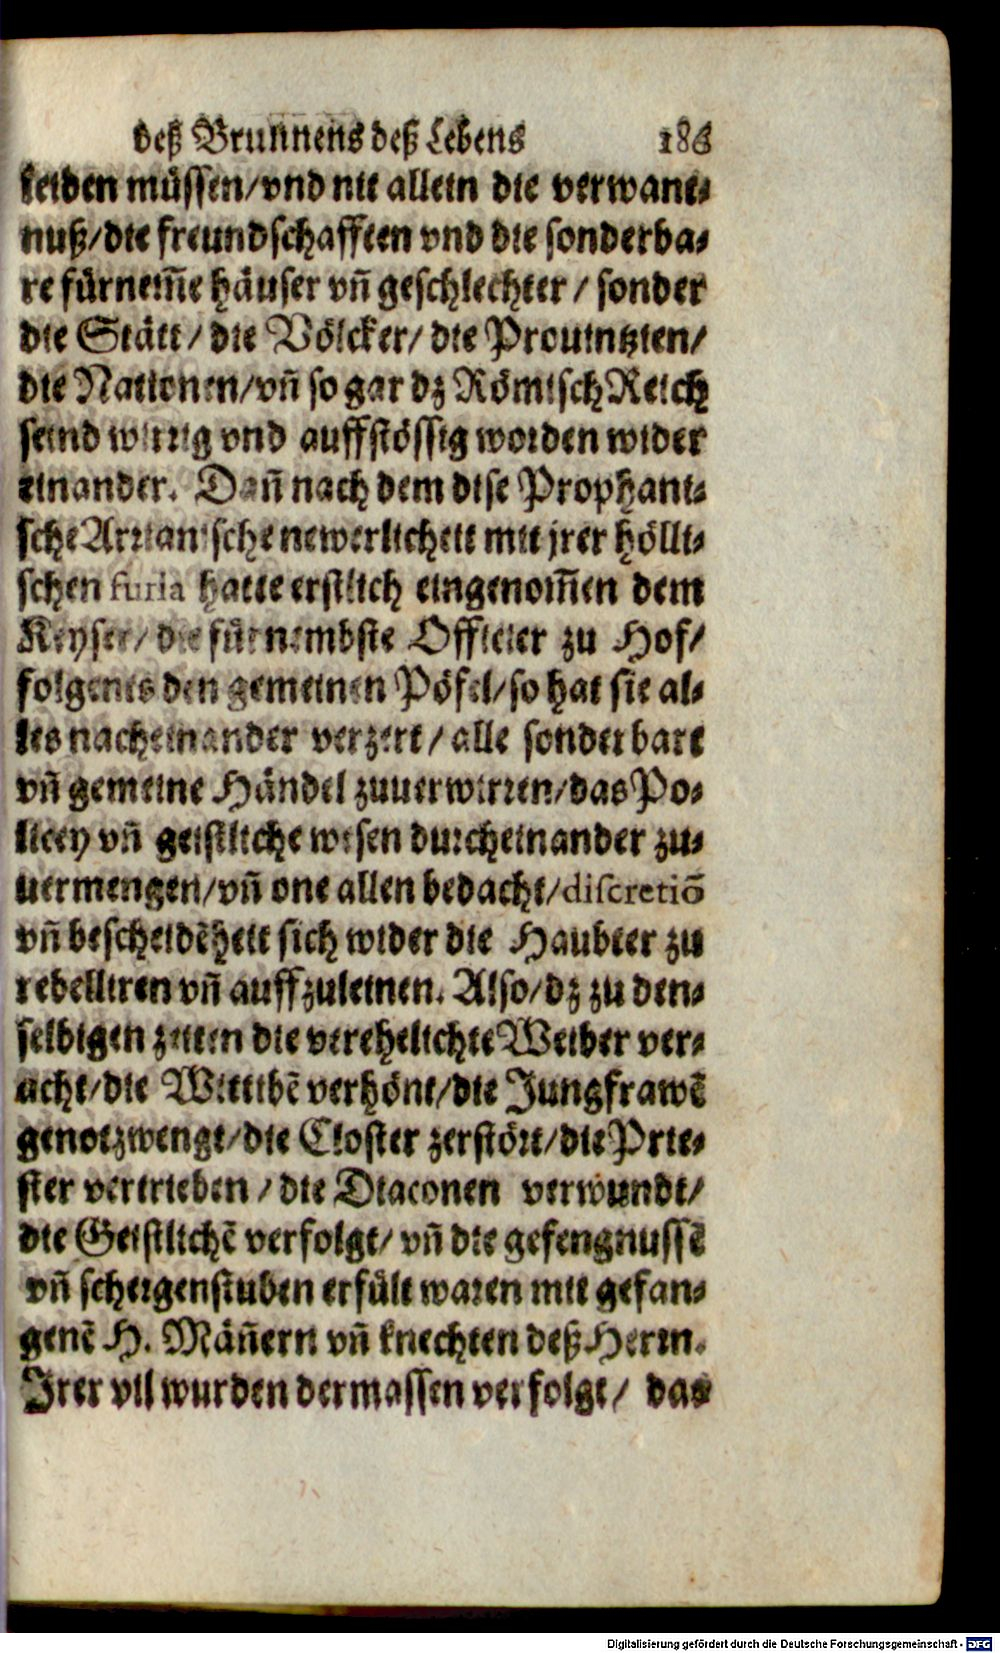 deß Brunnens deß Lebens 186
leiden müssen/vnd nit allein die verwant-
nuß/die freundschafften vnd die sonderba-
re fürnem̃e häuser vñ geschlechter/ sonder
die Stätt/ die Völcker/ die Prouintzien/
die Nationen/vñ so gar dz Römisch Reich
seind wirrig vnd auffstössig worden wider
einander. Dañ nach dem dise Prophani-
sche Arrianische newerlicheit mit jrer hölli-
schen furia hatte erstlich eingenom̃en dem
Keyser/ die fürnembste Officier zu Hof/
folgents den gemeinen Pöfel/so hat sie al-
les nacheinander verzert/ alle sonderbare
vñ gemeine Händel zuuerwirren/das Po-
licey vñ geistliche wesen durcheinander zu-
uermengen/vñ one allen bedacht/discretiō
vñ bescheidēheit sich wider die Haubter zu
rebelliren vñ auffzuleinen. Also/dz zu den-
selbigen zeiten die verehelichte Weiber ver-
acht/die Wittibē verhönt/die Jungfrawē
genotzwengt/die Closter zerstört/die Prie-
ster vertrieben/ die Diaconen verwundt/
die Geistlichē verfolgt/ vñ die gefengnussē
vñ schergenstuben erfült waren mit gefan-
genē H. Mäñern vñ knechten deß Herrn.
Jrer vil wurden dermassen verfolgt/ das
Digitalisierung gefördert durch die Deutsche Forschungsgemeinschaft - DFG